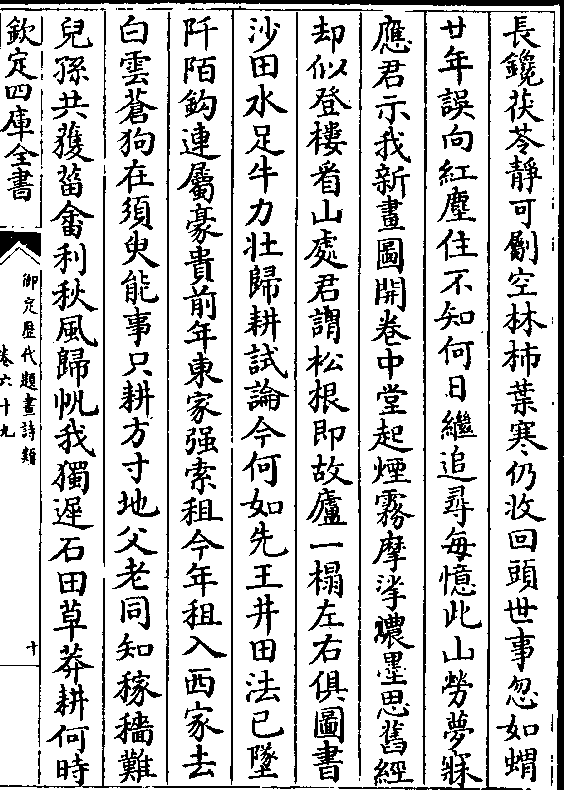 長鑱茯苓靜可劚空林柿葉寒仍收回頭世事忽如蝟
廿年誤向紅塵住不知何日繼追尋每憶此山勞夢寐
應君示我新畫圖開卷中堂起煙霧摩挲濃墨思舊經
却似登樓看山處君謂松根即故廬一榻左右俱圖書
沙田水足牛力壯歸耕試論今何如先王井田法已墜
阡陌鈎連屬豪貴前年東家强索租今年租入西家去
白雲蒼狗在須臾能事只耕方寸地父老同知稼穡難
兒孫共獲菑畲利秋風歸帆我獨遲石田草莽耕何時
欽定四庫全書
御定歷代題畫詩類
卷六十九
十